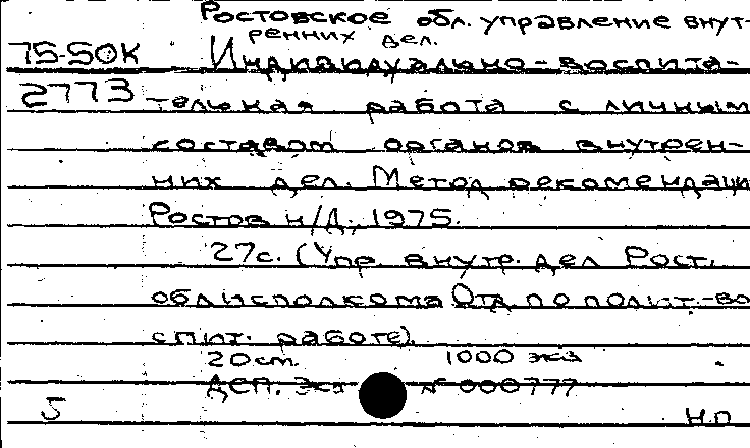 Ростовское обл. управление внут-
ренних дел.
75-50К Индивидуально-воспита-
2773 тельная работа с личным
составом органов внутрен-
них дел. Метод. рекомендаци
Ростов н/Д., 1975.
27с. (Упр. внутр. дел Рост.
облисполкома Отд. по полит.-во
спит. работе).
20 см. 1000 экз
Деп. Экз № 000777
5 Н.П